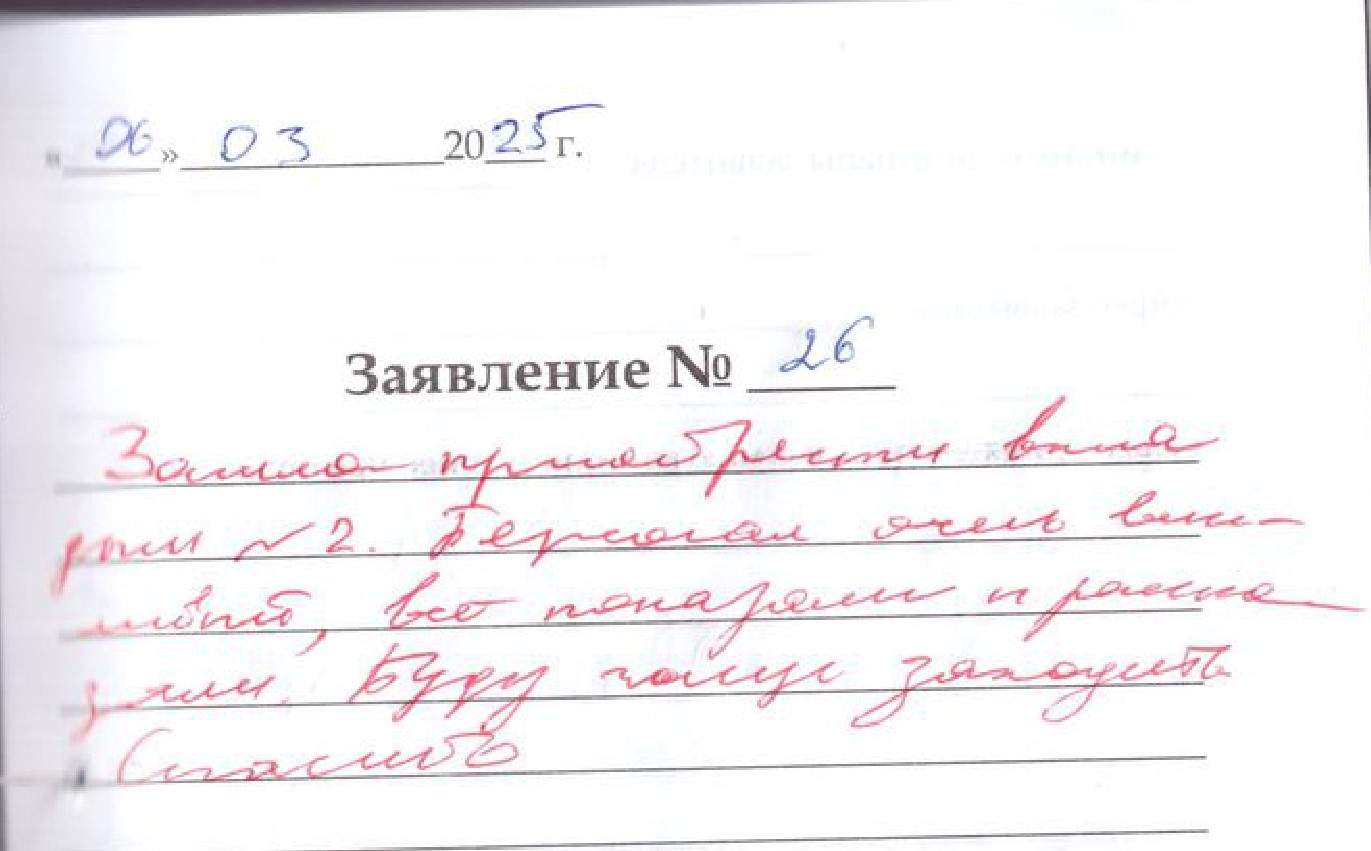 «06» 03 2025 г.
Заявление № 26
Зашла приобрести вкла
дыш №2. Персонал очень вежли-
вый, всё показали и расска
зали. Буду чаще заходить
Спасибо